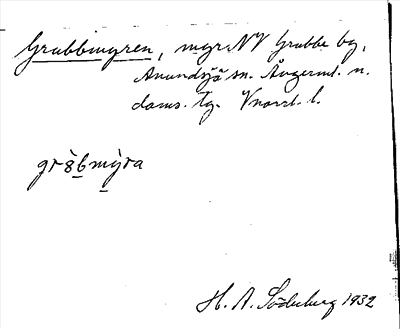 Grubbmyren, myr NV Grubbe by,
Anundsjö sn. Ångerml. n.
doms. tg. Vnorrl. l.
grȣ̀bmỳra
H. A. Söderberg 1932